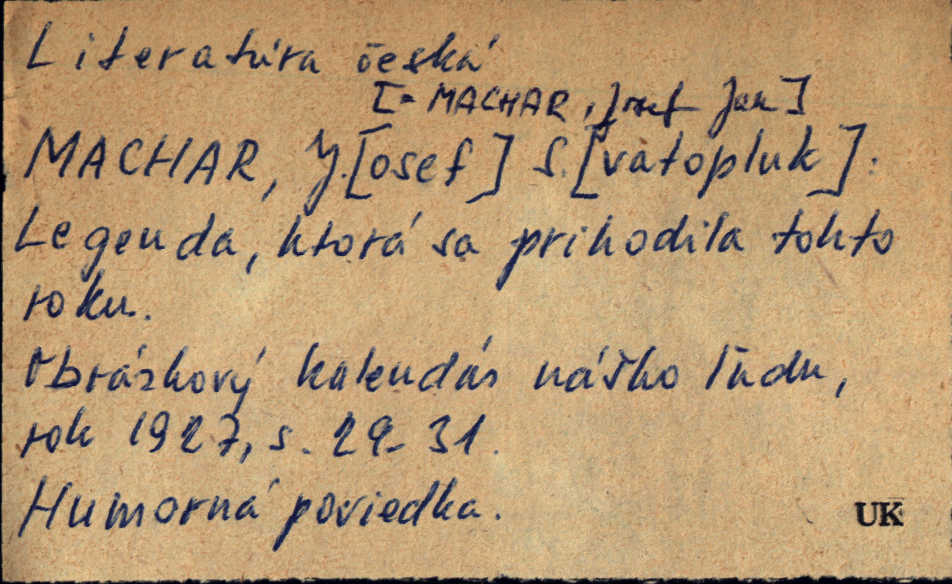 Literatúra česká
[= MACHAR, Josef Jan]
MACHAR, J.[osef] S.[vatopluk]:
Legenda, ktorá sa prihodila tohto
roku.
Obrázkový kalendár nášho ľudu,
rok 1927, s. 29-31.
Humorná poviedka.
UK